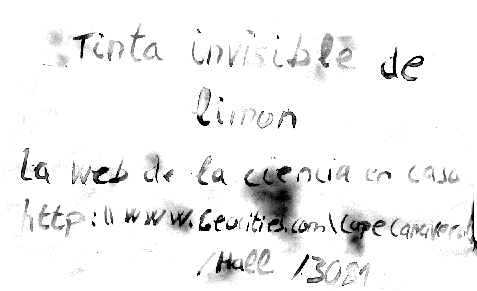 Tinta invisible de
limon
La web de la ciencia en casa
http:\\www.Geocities.com\CapeCanaveral
/Hall /3021